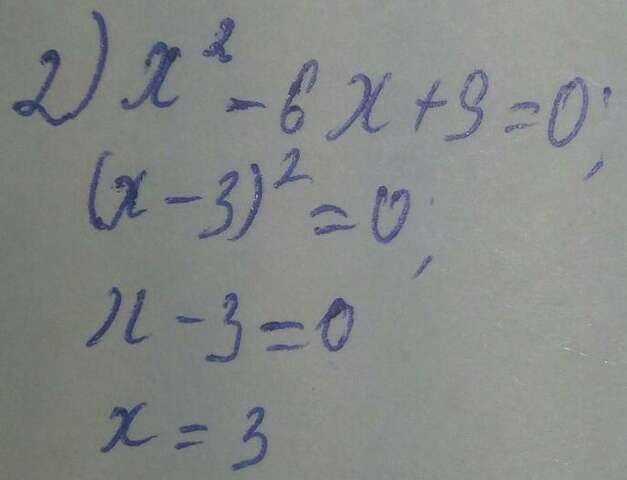 2) x² - 6x + 9 = 0;
(x - 3)² = 0;
x - 3 = 0
x = 3